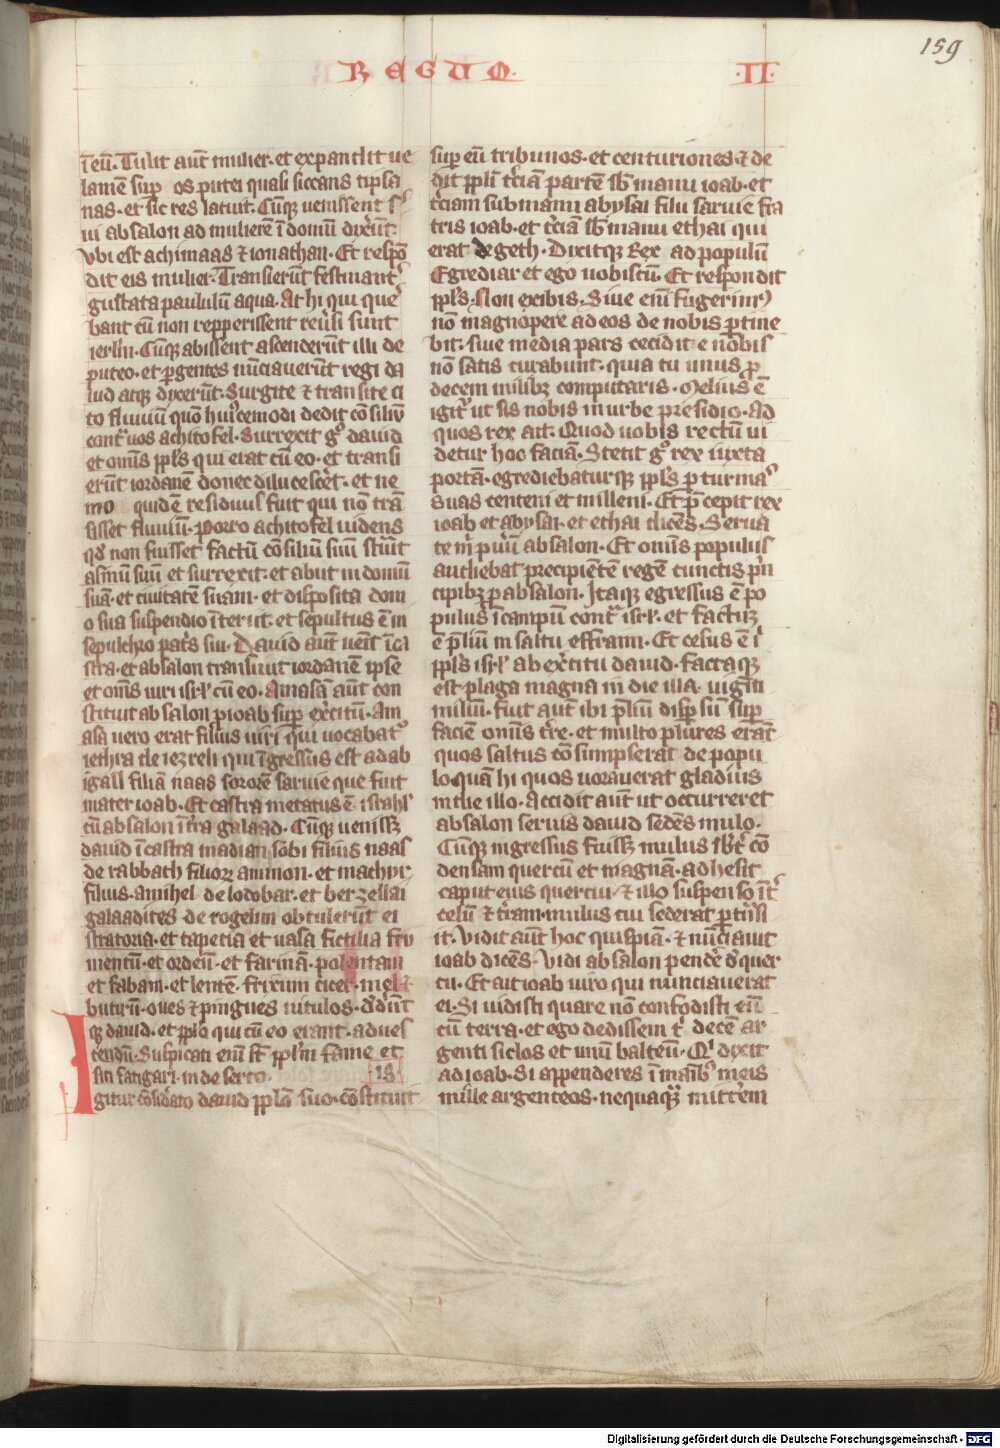 REGUM
.II.
159
ī eū. Tulit aūt mulier. et expandit ue
lamē sup̄ os putei quasi siccans tipsa
nas. et sic res latuit. Cūq; uenissent s̄
ui absalon ad muliere ī domū dixer̄t.
Vbi est achimaas ⁊ ionathan. Et respō
dit eis mulier. Transierūt festinant̄
gustata paululū aqua. At hi qui que
bant cū non repperissent reuersi sunt
ierl̄m. Cūq; abissent ascenderūt illi de
puteo. et p̄gentes nūciauerūt regi da
uid atq; dixerūt. Surgite ⁊ transite ci
to fluuiū quō huiꝰcemodi dedit cōsiliū
cont̄ uos achitofel. Surrexit gͦ dauid
et om̄is ppl̄s qui erat cū eo. et transi
erūt iordanē donec dilucescer̄t. et ne
mo quidē residuus fuit qui nō trā
sisset fluuiū. Porro achitofel uidens
qd̓ non fuisset factū cōsiliū suū str̄uit
asinū suū et surrexit. et abiit in domū
suā. et ciuitatē suam. et disposita dom
o sua suspendio īteriit. et sepultus ē in
sepulchro patr̄s sui. Dauid aūt uenit ī ca
stra. et absalon transiuit iordanē ipse
et om̄s uiri isrl̄ cū eo. Amasā aūt con
stituit absalon p ioab sup̄ exc̄itū. Am
asa uero erat filius uiri qui uocabat̄
iethra de iezreli qui īgressus est ad ab
igail filiā naas sororē saruie que fuit
mater ioab. Et castra metatus ē israhl̄
cū absalon ī tr̄a galaad. Cūq; uenissz
dauid ī castra madian sobi filius naas
de rabbath filioꝝ ammon. et machyr
filius amihel de lodobar. et berzellai
galaadites de rogelim obtulerūt ei
stratoria. et tapetia et uasa fictilia fru
mentū. et ordeū. et farinā. polentam
et fabam. et lentē. frixum cicer. mel ⁊
butirū. oues ⁊ pingues uitulos. dd̓ūt
q; dauid. et ppl̄o qui cū eo erant. ad ues
cendū. Suspicati enī st̄ ppl̄m fame et
siti fatigari. in deserto. 18
Igitur cōsid̓ato dauid ppl̄o suo. cōstituit
sup̄ eū tribunos. et centuriones ⁊ de
dit ppl̄i tc̄iā partē sb̄ manu ioab. et
tc̄iam sub manu abysai filii saruie fra
tris ioab. et tc̄iā sb̄ manu ethai qui
erat de geth. Dixitq; Rex ad populū
Egrediar et ego uobiscū. Et respondit
ppl̄s. Non exibis. Siue enī fugerimꝰ
nō magnopere ad eos de nobis p̄tine
bit. siue media pars cecidit e nobis
nō satis curabunt. quia tu unus p̄
decem milibꝫ computaris. Melius ē
igit̄ ut sis nobis in urbe presidio. Ad
quos rex ait. Quod uobis rectū ui
detur hoc faciā. Stetit gͦ rex iuxta
portā. egrediebaturq; ppl̄s p̄ turmas
suas centeni et milleni. Et p̄cepit rex
ioab et abysai. et ethai dicēs. Serua
te m̄ puerū absalon. Et om̄is populus
audiebat precipientē regē cunctis prī
cipibꝫ p absalon. Itaq; egressus ē po
pulus ī campū cont̄ isrl̄. et factuꝫ
ē p̄liū in saltu effraim. Et cesus ē ī
ppl̄s isrl̄ ab exc̄itu dauid. factaq;
est plaga magna in die illa. uiginti
miliū. fuit aut̄ ibi p̄liū disp̄sū sup̄
faciē om̄is tr̄e. et multo plures erāt
quos saltus cōsumpserat de popu
lo. quā hi quos uorauerat gladius
in die illo. Accidit aūt ut occurreret
absalon seruis dauid sedēs mulo.
Cūq; ingressus fuissꝫ mulus sbt̄ cō
densam quercū et magnā. adhesit
caput eius quercui. ⁊ illo suspenso īt̄
celū ⁊ tr̄am. mulus cui sederat p̄trāsi
it. Vidit aūt hoc quispiā. ⁊ nūciauit
ioab dicēs. Vidi absalon pendēe d̓ quer
cu. Et ait ioab uiro qui nunciauerat
ei. Si uidisti quare nō confodisti eū
cū terra. et ego dedissem t̄ decē ar
genti siclos et unū balteū. Qͥ dixit
ad ioab. Si appenderes ī manibꝰ meis
mille argenteos. nequaqꝫ mitterem
Digitalisierung gefördert durch die Deutsche Forschungsgemeinschaft - DFG